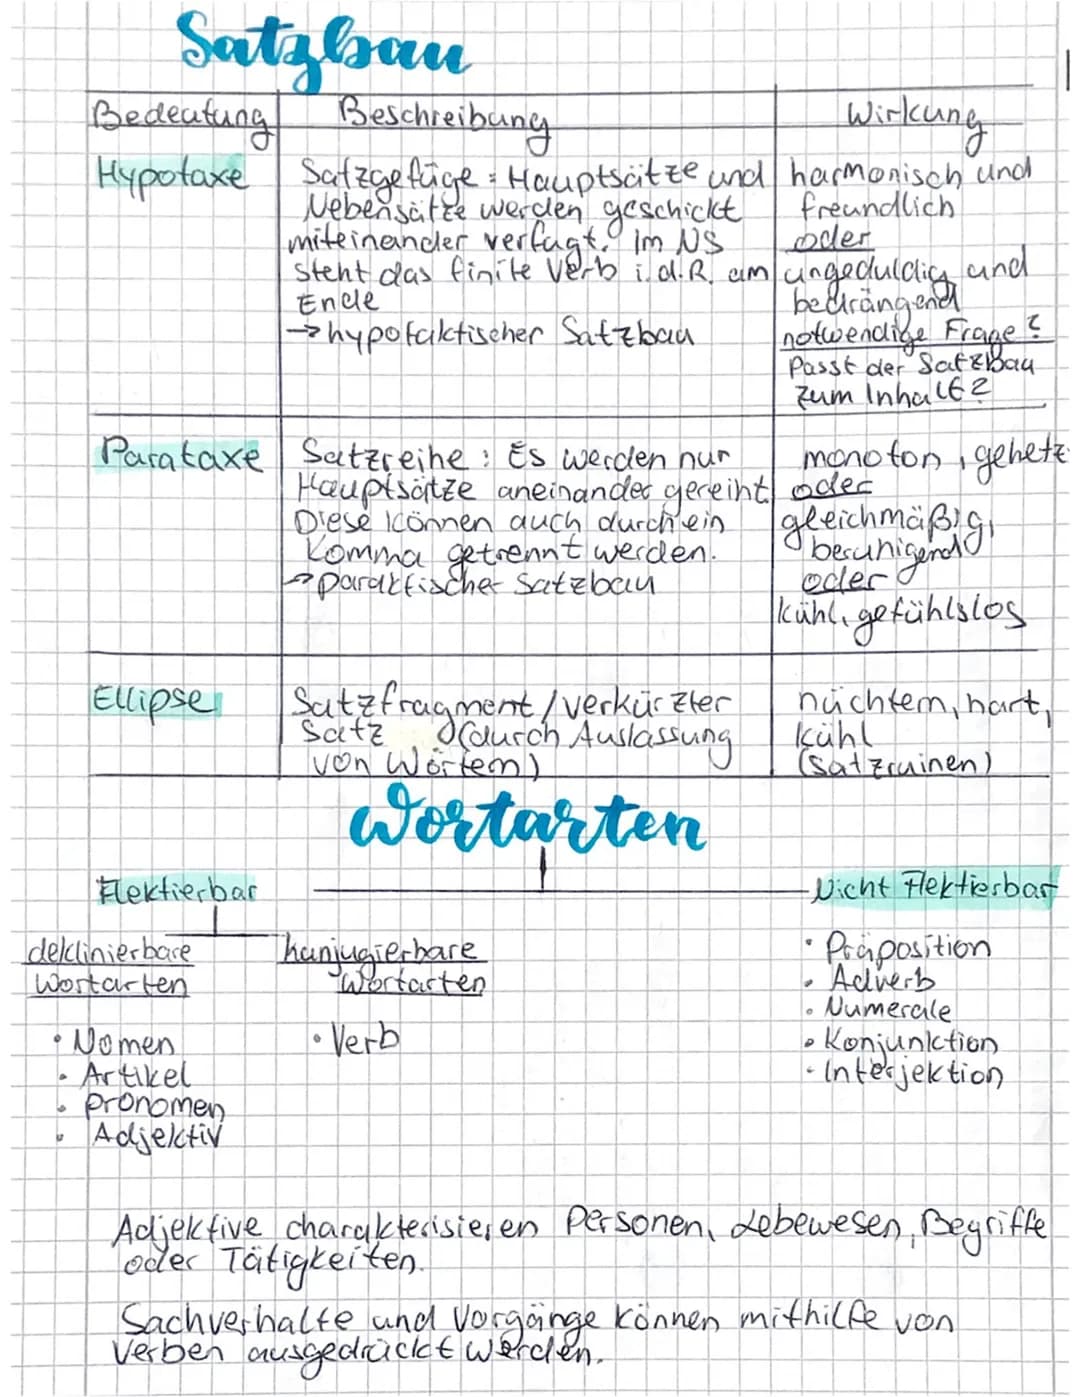 Satzbau
Bedeutung Beschreibung Wirkung
Hypotaxe
Satzgefüge: Hauptsätze und
Nebensätze werden geschickt
miteinander verfugt. Im NS
steht das finite Verb i.d.R. am
Ende
→ hypotaktischer Satzbau
harmonisch und
freundlich
oder
ungeduldig und
bedrängend
notwendige Frage?
Passt der Satzbau
zum Inhalt?
Parataxe
Satzreihe: Es werden nur
Hauptsätze aneinander gereiht
Diese können auch durch ein
Komma getrennt werden.
→ parataktischer Satzbau
monoton, gehetz
oder
gleichmäßig,
beruhigend
oder
kühl, gefühlslos
Ellipse
Satzfragment/verkürzter
Satz (durch Auslassung
von Wörtern)
nüchtern, hart,
kühl
(Satzruinen)
Wortarten
Flektierbar
Nicht Flektierbar
deklinierbare
Wortarten
• Nomen
• Artikel
• Pronomen
• Adjektiv
konjugierbare
Wortarten
• Verb
• Präposition
• Adverb
• Numerale
• Konjunktion
• Interjektion
Adjektive charakterisieren Personen, Lebewesen, Begriffe
oder Tätigkeiten.
Sachverhalte und Vorgänge können mithilfe von
Verben ausgedrückt werden.